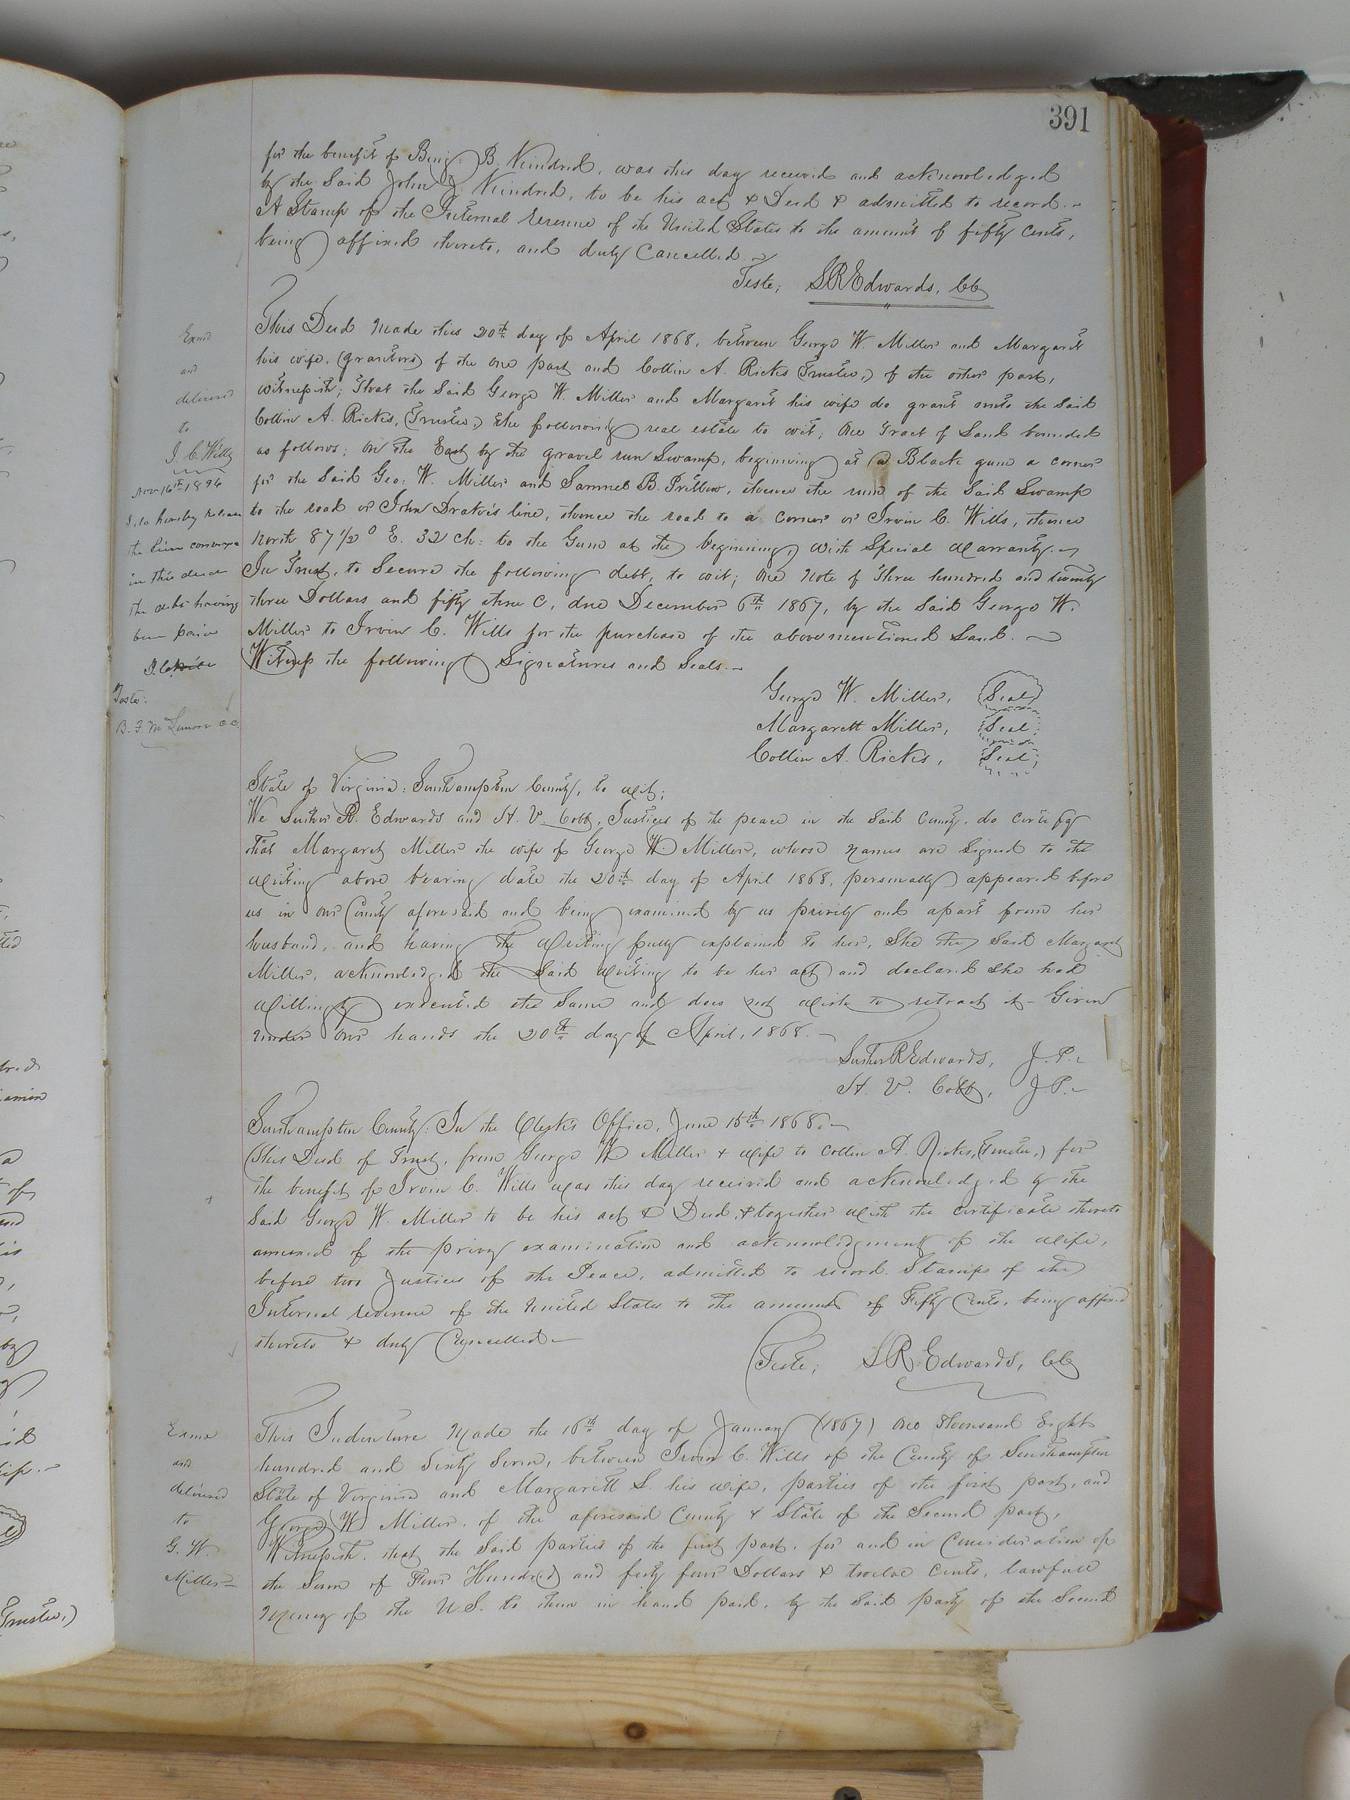 391
for the benefit of Benj. B. Kindred, was this day received and acknowledged
by the Said John J. Kindred, to be his act & Deed & admitted to record.
A Stamp of the Internal revenue of the United States to the amount of fifty cents,
being affixed thereto, and duly Cancelled.
Teste, S R Edwards, CC
Exmd
and
delivered
to
I. C. Wills
Nov 16th 1896
I, do hereby release
the lien conveyed
in this deed
the debt having
been paid
I C Wills
Teste:
B. F. McLemore CC
This Deed Made this 20th day of April 1868, between George W. Miller and Margaret
his wife, (grantors) of the one part and Collin A. Ricks (Trustee,) of the other part,
witnesseth; That the Said George W. Miller and Margaret his wife do grant unto the Said
Collin A. Ricks, (Trustee,) the following real estate to wit; One Tract of Land bounded
as follows; On the East by the gravel run Swamp, beginning at a Black gum a corner
for the Said Geo. W. Miller and Samuel B. Pretlow, thence the run of the Said Swamp
to the road or John Drake's line, thence the road to a corner or Irvin C. Wills, thence
North 87 1/2° E. 32 ch: to the Gum at the beginning, with Special Warranty.
In Trust, to Secure the following debt, to wit; One Note of Three hundred and twenty
three Dollars and fifty three C, due December 6th 1867, by the Said George W.
Miller to Irvin C. Wills for the purchase of the abovementioned Land.
Witness the following Signatures and Seals.
George W. Miller, Seal
Margarett Miller, Seal
Collin A. Ricks, Seal
State of Virginia: Southampton County, to wit;
We Luther R. Edwards and H. V. Cobb, Justices of the peace in the Said County, do certify
that Margaret Miller the wife of George W. Miller, whose names are Signed to the
writing above bearing date the 20th day of April 1868, personally appeared before
us in our County aforesaid and being examined by us privily and apart from her
husband, and having the writing fully explained to her, She the Said Margaret
Miller, acknowledged the Said writing to be her act and declared She had
willingly executed the Same and does not wish to retract it - Given
under our hands the 20th day of April, 1868.
Luther R Edwards, J. P.
H. V. Cobb, J. P.
Southampton County: In the Clerk's Office, June 15th 1868.
This Deed of Trust, from George W Miller & wife to Collin A. Ricks, (Trustee,) for
the benefit of Irvin C. Wills was this day received and acknowledged by the
Said George W. Miller to be his act & Deed, & together with the certificate thereto
annexed of the privy examination and acknowledgment of the wife,
before two Justices of the Peace, admitted to record. Stamps of the
Internal revenue of the United States to the amount of Fifty Cents, being affixed
thereto & duly Cancelled
Teste, S R. Edwards, CC
Exmd
and
delivered
to
G. W.
Miller
This Indenture Made the 16th day of January (1867) One Thousand Eight
hundred and Sixty Seven, between Irvin C. Wills of the County of Southampton
State of Virginia and Margarett S. his wife, parties of the first part, and
George W Miller, of the aforesaid County & State of the Second part,
Witnesseth, that the Said parties of the first part, for and in Consideration of
the Sum of Four Hundred and forty four Dollars & twelve Cents, lawfull
Money of the U.S. to them in hand paid, by the Said party of the Second